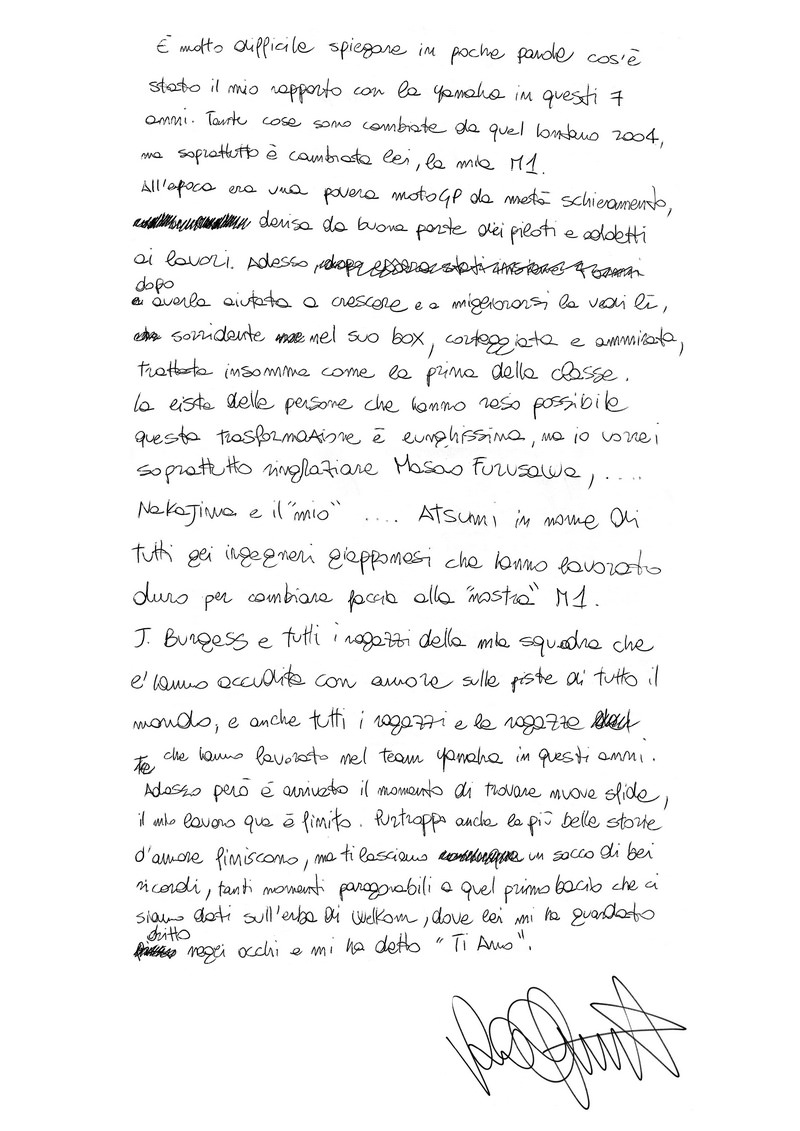 È molto difficile spiegare in poche parole cos'è
stato il mio rapporto con la yamaha in questi 7
anni. Tante cose sono cambiate da quel lontano 2004,
ma soprattutto è cambiata lei, la mia M1.
All'epoca era una povera motoGP da metà schieramento,
derisa da buona parte dei piloti e addetti
ai lavori. Adesso,
dopo
averla aiutata a crescere e a migliorarsi la vedi lì,
sorridente nel suo box, corteggiata e ammirata,
trattata insomma come la prima della classe.
la lista delle persone che hanno reso possibile
questa trasformazione è lunghissima, ma io vorrei
soprattutto ringraziare Masao Furusawa, ....
Nakajima e il "mio" .... Atsumi in nome di
tutti gli ingegneri giapponesi che hanno lavorato
duro per cambiare faccia alla "nostra" M1.
J. Burgess e tutti i ragazzi della mia squadra che
l'hanno accudita con amore sulle piste di tutto il
mondo, e anche tutti i ragazzi e le ragazze
che hanno lavorato nel team yamaha in questi anni.
Adesso però è arrivato il momento di trovare nuove sfide,
il mio lavoro qua è finito. Purtroppo anche le più belle storie
d'amore finiscono, ma ti lasciano un sacco di bei
ricordi, tanti momenti paragonabili a quel primo bacio che ci
siamo dati sull'erba di Welkom, dove lei mi ha guardato
dritto
negli occhi e mi ha detto "Ti Amo".